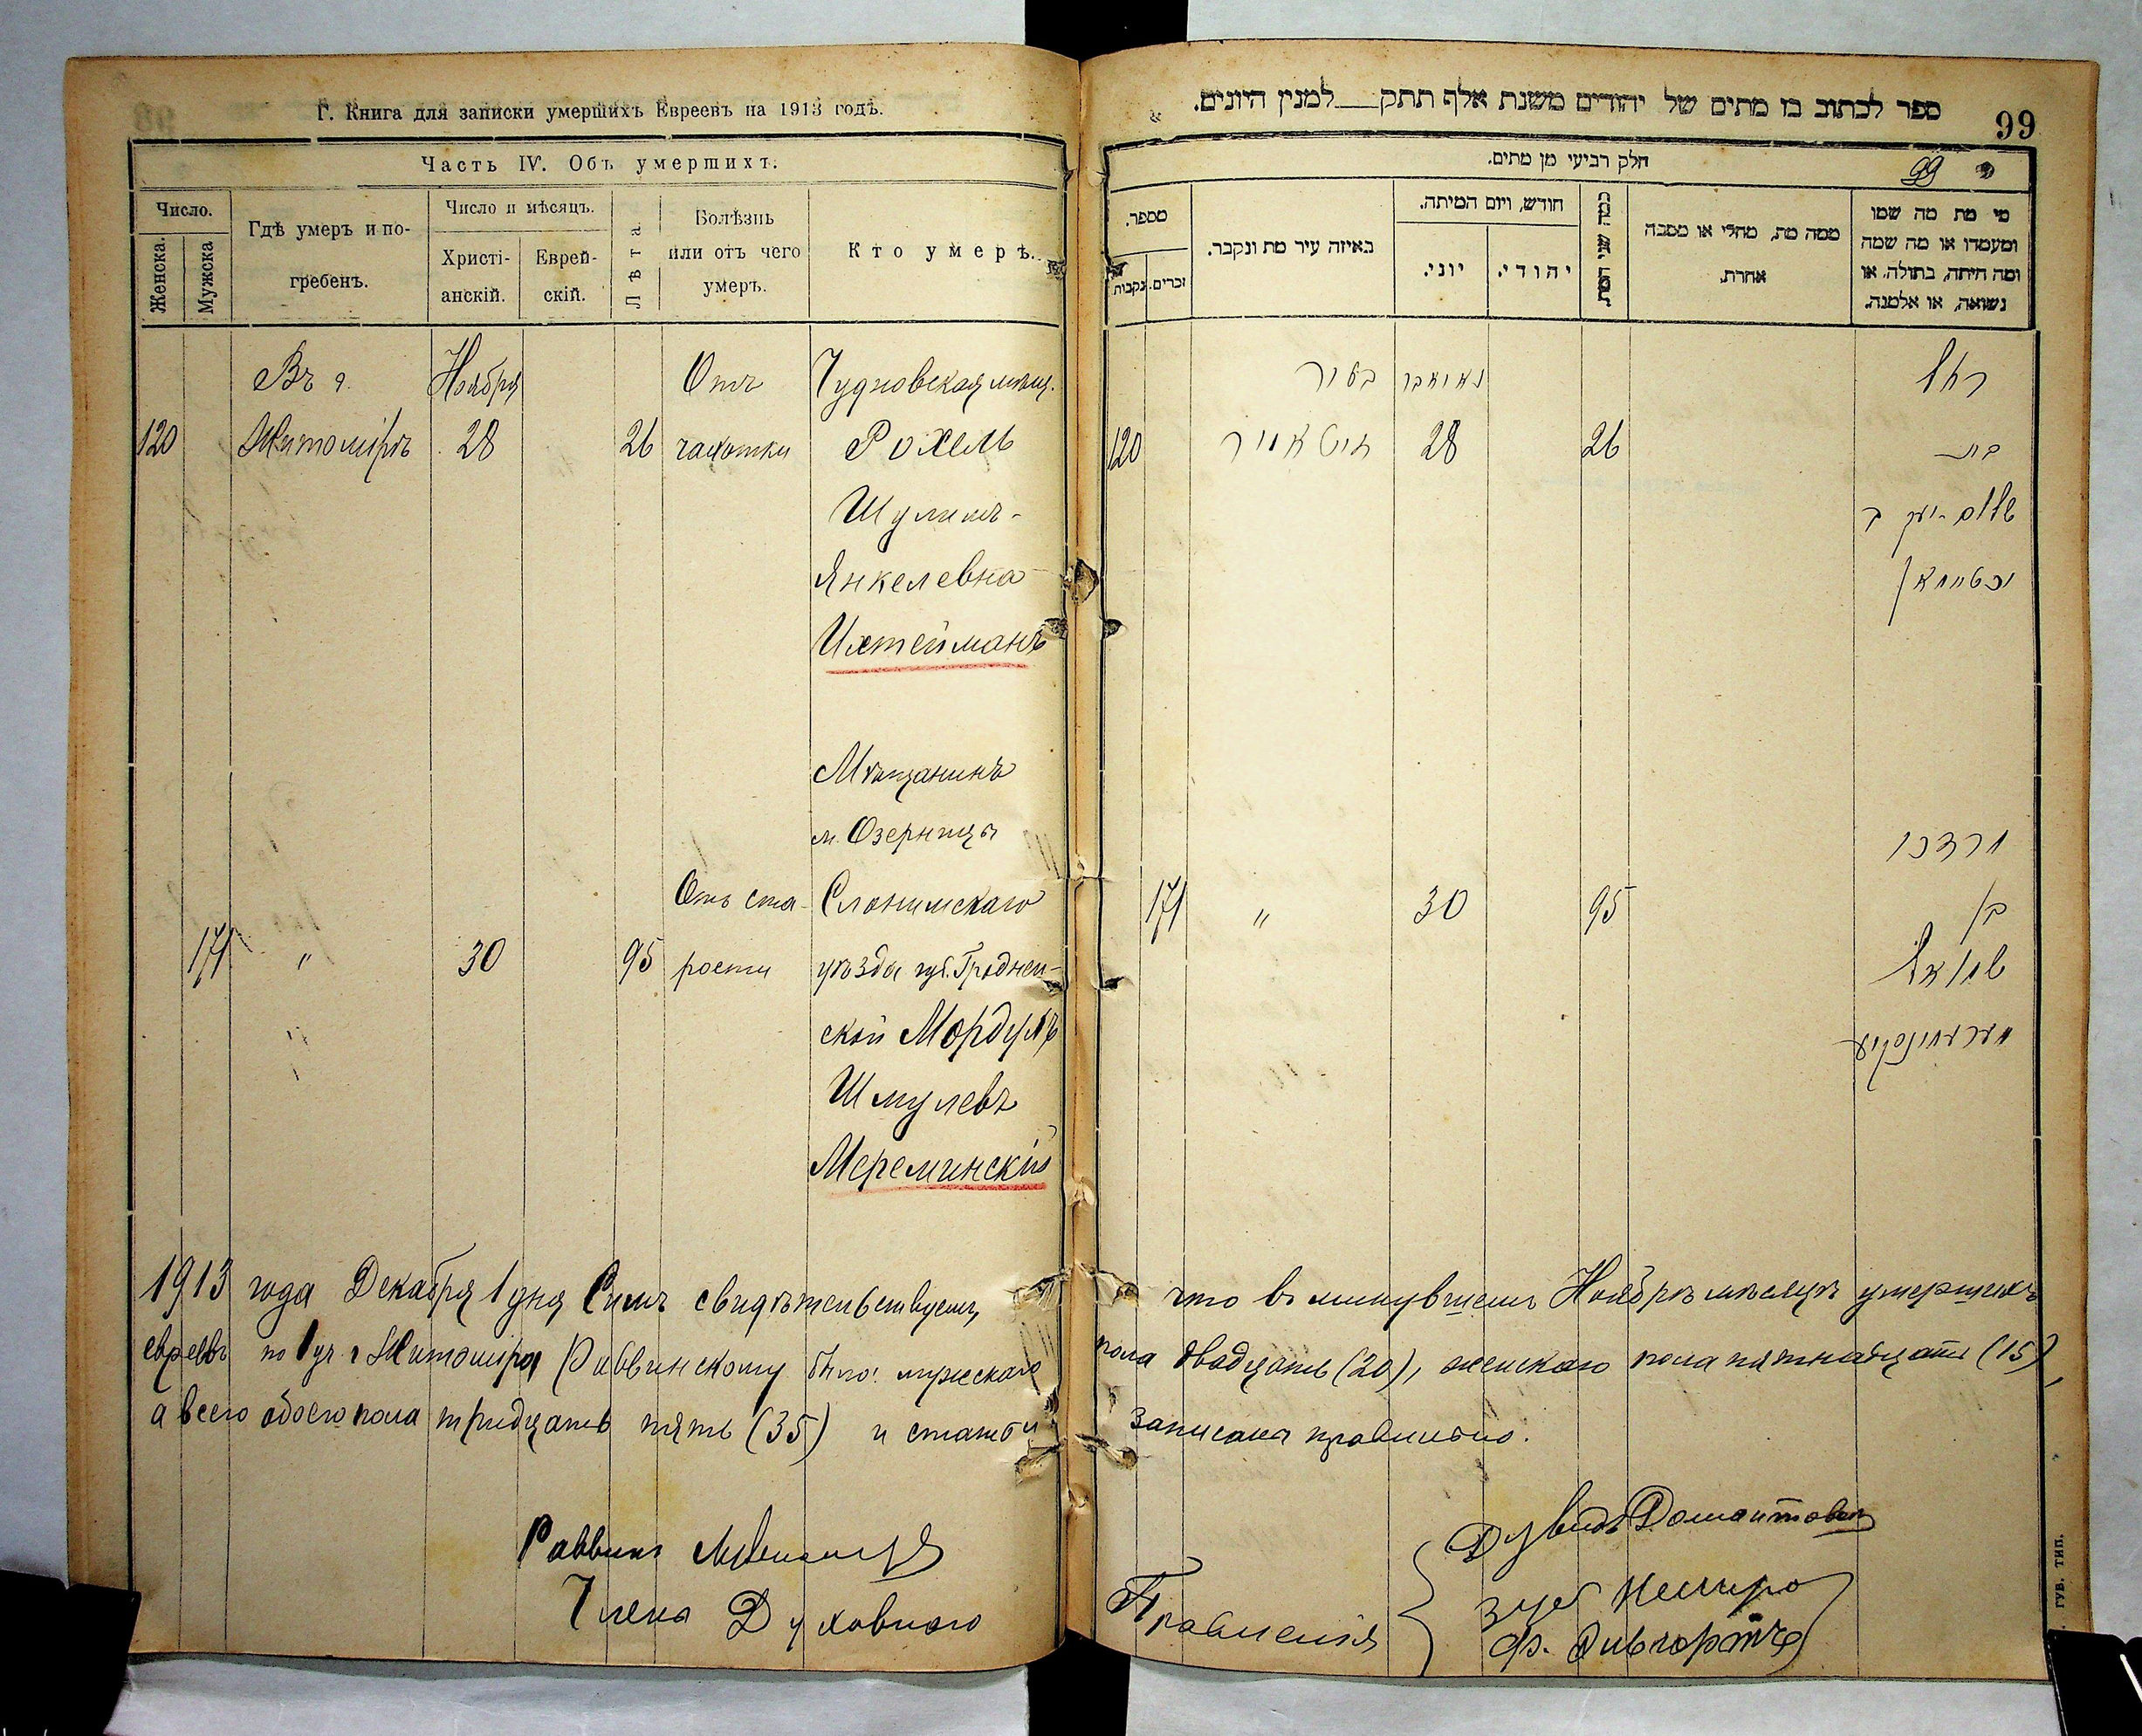 Г. Книга для записки умершихъ Евреевъ на 1913 годъ.
Часть IV. Объ умершихъ.
Число.
Женска.
Мужска
Гдѣ умеръ и по-
гребенъ.
Число и мѣсяцъ.
Христі-
анскій.
Еврей-
скій.
Лѣта
Болѣзнь
или отъ чего
умеръ.
Кто умеръ.
Въ г. Ноября Отъ Чудновская мѣщ.
120 Житомірѣ 28 26 чахотки Рохель
Шулимъ-
Янкелевна
Ихтейманъ
Мѣщанинъ
м. Озерницы
Отъ ста- Слонимскаго
171 " 30 95 рости уѣзда губ. Гроднен-
ской Мордухъ
Шмулевъ
Мереминскій
1913 года Декабря 1 дня Симъ свидѣтельствуемъ,
евреевъ по 1 уч. г Житомира Раввинскому было: мужскаго
а всего обоего пола тридцать пять (35) и статьи
Раввинъ
Члены Духовнаго
ספר לכתוב בו מתים של יהודים משנת אלף תתק למנין היונים.
99
חלק רביעי מן מתים.
99
מספר.
נקבות
זכרים.
באיזה עיר מת ונקבר.
חודש, ויום המיתה.
יוני.
יהודי.
כמה שני המת
ממה מת, מחלי או מסבה
אחרת.
מי מת מה שמו
ומעמדו או מה שמה
ומה היתה, בתולה, או
נשואה, או אלמנה.
רחל
120 28 26 בת
שלום-יעקב
מרדכי
171 " 30 95 בן
שמואל
что въ минувшемъ Ноябрѣ мѣсяцѣ умершихъ
пола двадцать (20), женскаго пола пятнадцать (15),
записаны правильно.
Правленія
гув. тип.